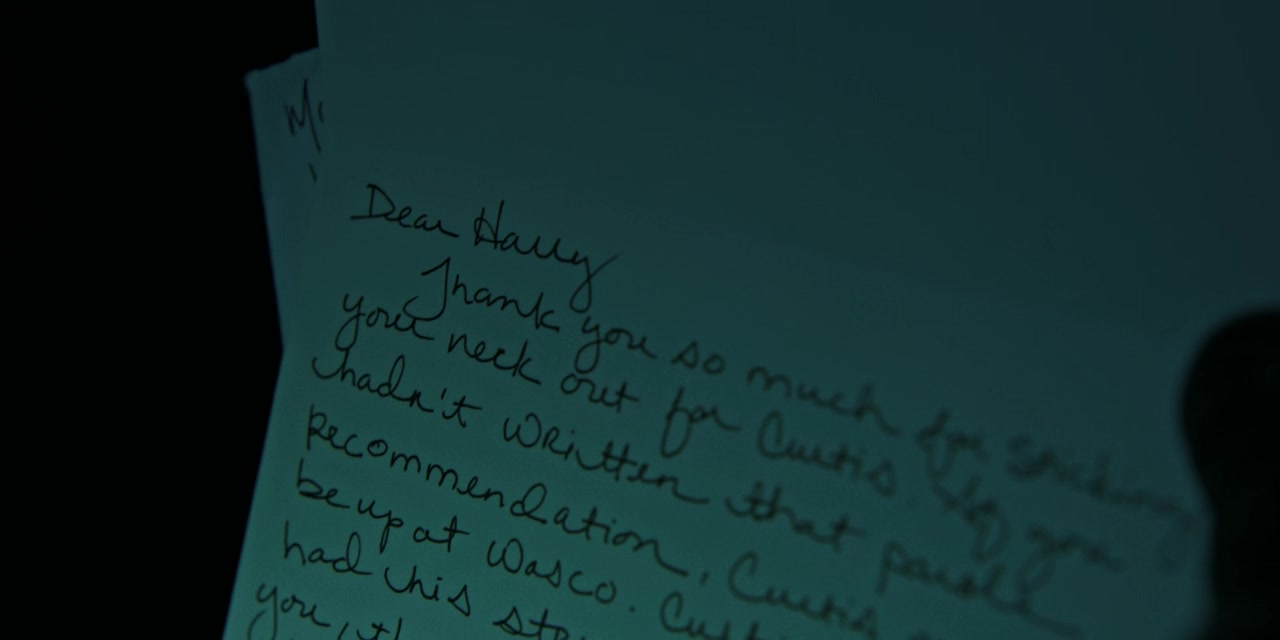 Dear Harry
Thank you so much for sticking
your neck out for Curtis. If you
hadn't written that parole
recommendation, Curtis
be up at Wasco.
had his
you,